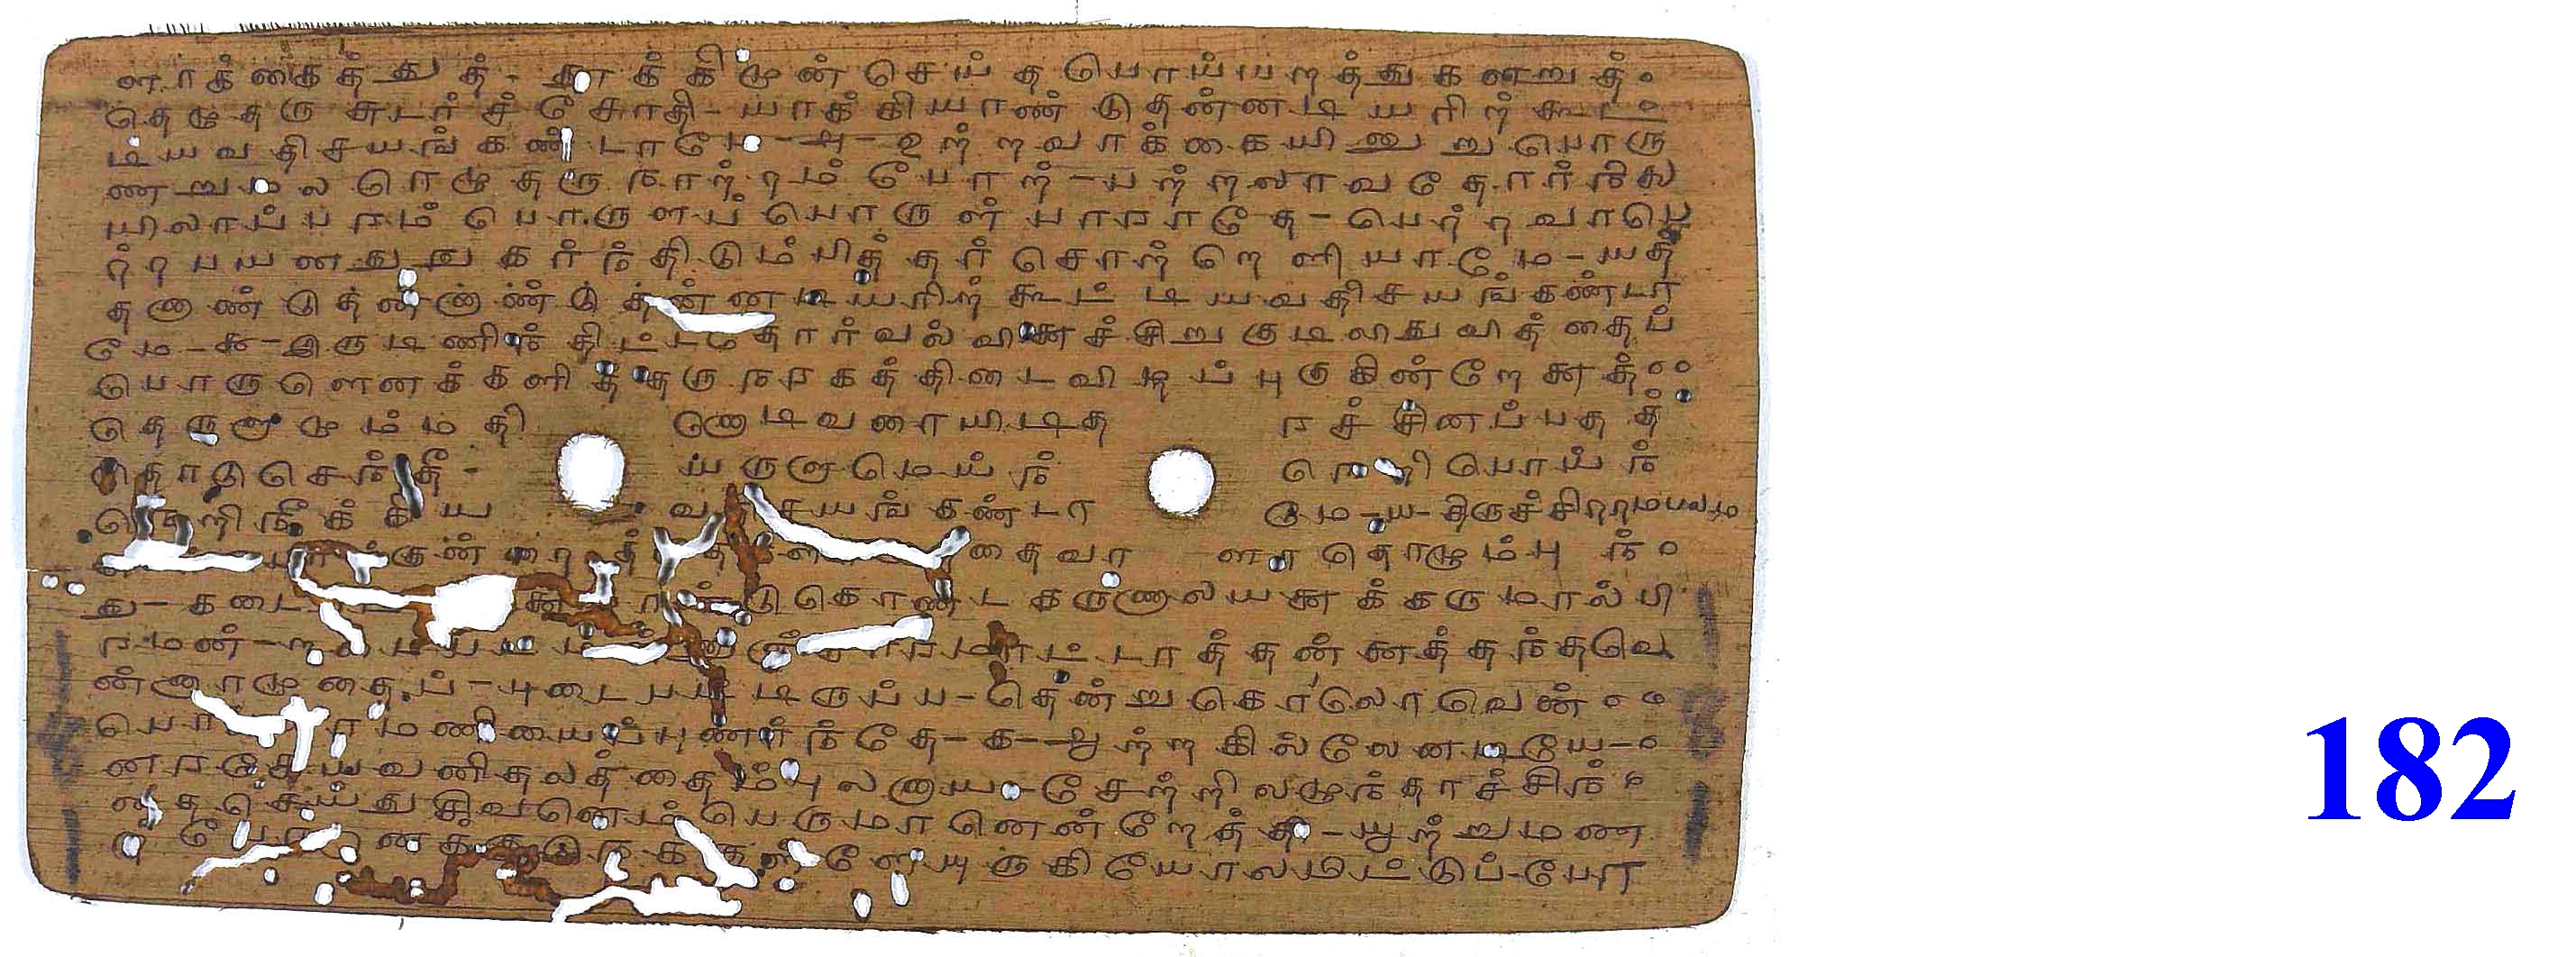 ளாக்கைத்துத்- தாக்கிமுன் செய்த பொய்யறத்துகளறுத்
தெழுதரு சுடர்ச்சோதி-யாக்கியாண்டுதன்னடியரிற் கூட்
டியவதிசயங்கண்டாமே-அ-உற்றவாக்கையினுறுபொரு
ணறுமலரெழுதரு நாற்றம் போற்-பற்றலாவதோர்நிலை
யிலாப்பரம்பொருளப்பொருள் பாராதே-பெற்றவாபெ
ற்றபயனதுநுகர்ந்திடும்பித்தர் சொற்றெளியாமே-யத்
தனாண்டுதன்னாண்டுத்ன்னடியரிற் கூட்டியவதிசயங்கண்டா
மே-க-இருடிணிந் திட்டதோர்வல்வினைச்சிறுகுடிலிதுவித்தைப்
பொருளெனக்களித்தருநரகத்திடைவிழப்புகுகின்றேனைத்
தெருளுமும்மதி ணொடிவரையிடிதர சச்சினப்பதத்
தொடுசெந்தீ- யருளுமெய்ந் நெறி பொய்ந்
நெறிநீக்கிய வதிசயங்கண்டா மே-ய-திருச்சிற்றம்பலம்
குன்றை தைவா ளா தொழும்பு ந்
து-கடை ண்டுகொண்ட கருணாலயனைக்கருமால்பி
ரமன்- மாட்டாத்தன்னைத்தந்தவெ
ன்னாரமுதைப்-புடைபட்டிருப்ப-தென்றுகொலோவென்
பொ மணியைப்புணர்ந்தே-க-ஆற்றகில்லேனடியே
னரசேயவனிதலத்தைம்புலனாய-சேற்றிலழுந்தாச்சிந்
தைசெய்துசிவனெம்பெருமானென்றேத்தி-யூற்றுமண
ற் போ னெக்குநெக்குள்ளேயுருகியோலமிட்டுப்-போ